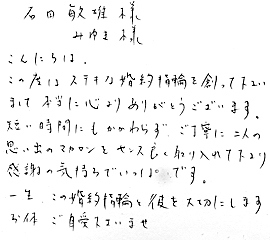 石田 敏雄 様
みゆき 様
こんにちは。
この度はステキな婚約指輪を創って下さい
まして 本当に心よりありがとうございます。
短い時間にもかかわらず、ご丁寧に二人の
思い出のマカロンをセンス良く取り入れて下さり
感謝の気持ちでいっぱいです。
一生、この婚約指輪と彼を大切にします
お体 ご自愛下さいませ